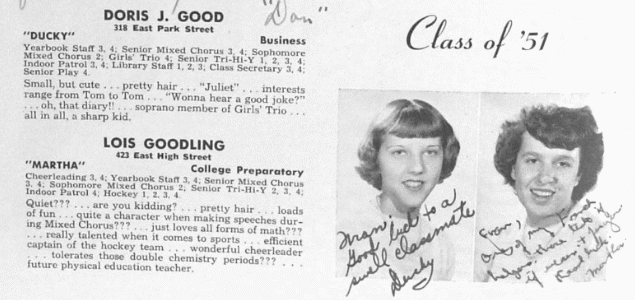 DORIS J. GOOD
"Don"
318 East Park Street
"DUCKY"
Business
Yearbook Staff 3, 4; Senior Mixed Chorus 3, 4; Sophomore
Mixed Chorus 2; Girls' Trio 4; Senior Tri-Hi-Y 1, 2, 3, 4;
Indoor Patrol 3, 4; Library Staff 1, 2, 3; Class Secretary 3, 4;
Senior Play 4.
Small, but cute . . . pretty hair . . . "Juliet" . . . interests
range from Tom to Tom . . . "Wonna hear a good joke?"
. . . oh, that diary!! . . . soprano member of Girls' Trio . . .
all in all, a sharp kid.
LOIS GOODLING
423 East High Street
"MARTHA"
College Preparatory
Cheerleading 3, 4; Yearbook Staff 3, 4; Senior Mixed Chorus
3, 4; Sophomore Mixed Chorus 2; Senior Tri-Hi-Y 2, 3, 4;
Indoor Patrol 4; Hockey 1, 2, 3, 4.
Quiet??? . . . are you kidding? . . . pretty hair . . . loads
of fun . . . quite a character when making speeches dur-
ing Mixed Chorus??? . . . just loves all forms of math???
. . . really talented when it comes to sports . . . efficient
captain of the hockey team . . . wonderful cheerleader
. . . tolerates those double chemistry periods??? . . .
future physical education teacher.
Class of '51
Good luck to a
swell classmate
Ducky